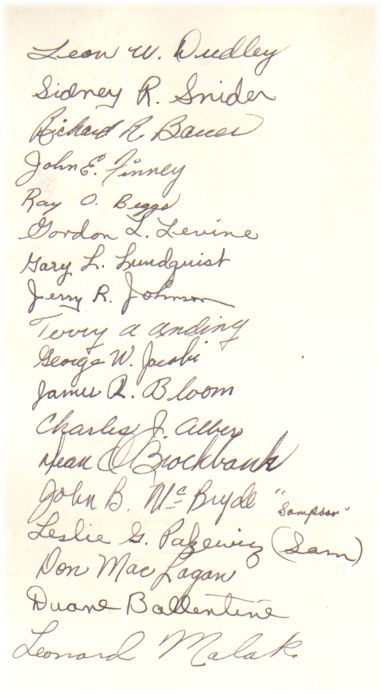 Leon W. Dudley
Sidney R. Snider
Richard R Bauer
John E. Finney
Ray O. Beggs
Gordon L. Levine
Gary L. Lundquist
Jerry R. Johnson
Terry A Anding
George W. Jacobi
James R. Bloom
Charles J. Alber
Dean O Brockbank
John B. McBryde "Sampson"
Leslie G. (Sam)
Don MacLagan
Duane Ballentine
Leonard Malak